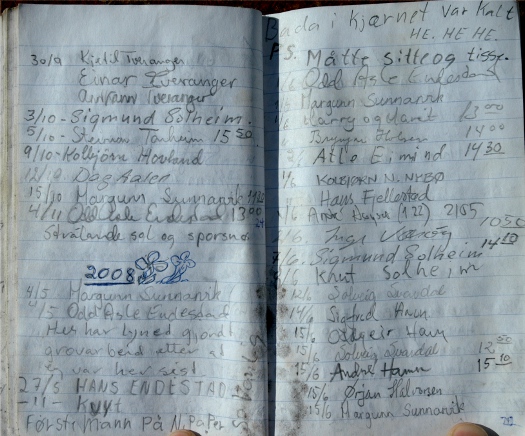 30/9 Kjetil Tveranger
Einar Tveranger
Arnfann Tveranger
3/10 - Sigmund Solheim.
5/10 - Steinar Tanheim 15 50
9/10 - Kolbjörn Hovland
12/10 Dag Aalen
15/10 Margunn Sunnarvik
4/11 Odd Asle Endestad 13 00
Strålande sol og sporsnø
2008
4/5 Margunn Sunnarvik
4/5 Odd Asle Endestad
Her har lyned gjordt
grovarbeid etter at
eg var her sist
27/5 HANS ENDESTAD
- 11 - Kvyt
Første Mann På N. PaPer
Bada i kjærnet var Kalt
HE. HE HE.
P.S. Måtte sitte og tisse.
Odd Asle Endestad
Margunn Sunnarvik
Harry og Marit 13 00
14 00
Atle Eimind 14 30
1/6 KOLBJØRN N. NYBØ
Hans Fjellestad
1/6 André (122) 2105
Inge 10 50
7/6 Sigmund Solheim 14 20
Knut Solheim
12/6 Solveig Svardal
14/6 Sigfred
15/6 Oddgeir
15/6 Solveig Svardal 12 00
15/6 André Hamre 15 10
15/6 Ørjan Halvorsen
15/6 Margunn Sunnarvik